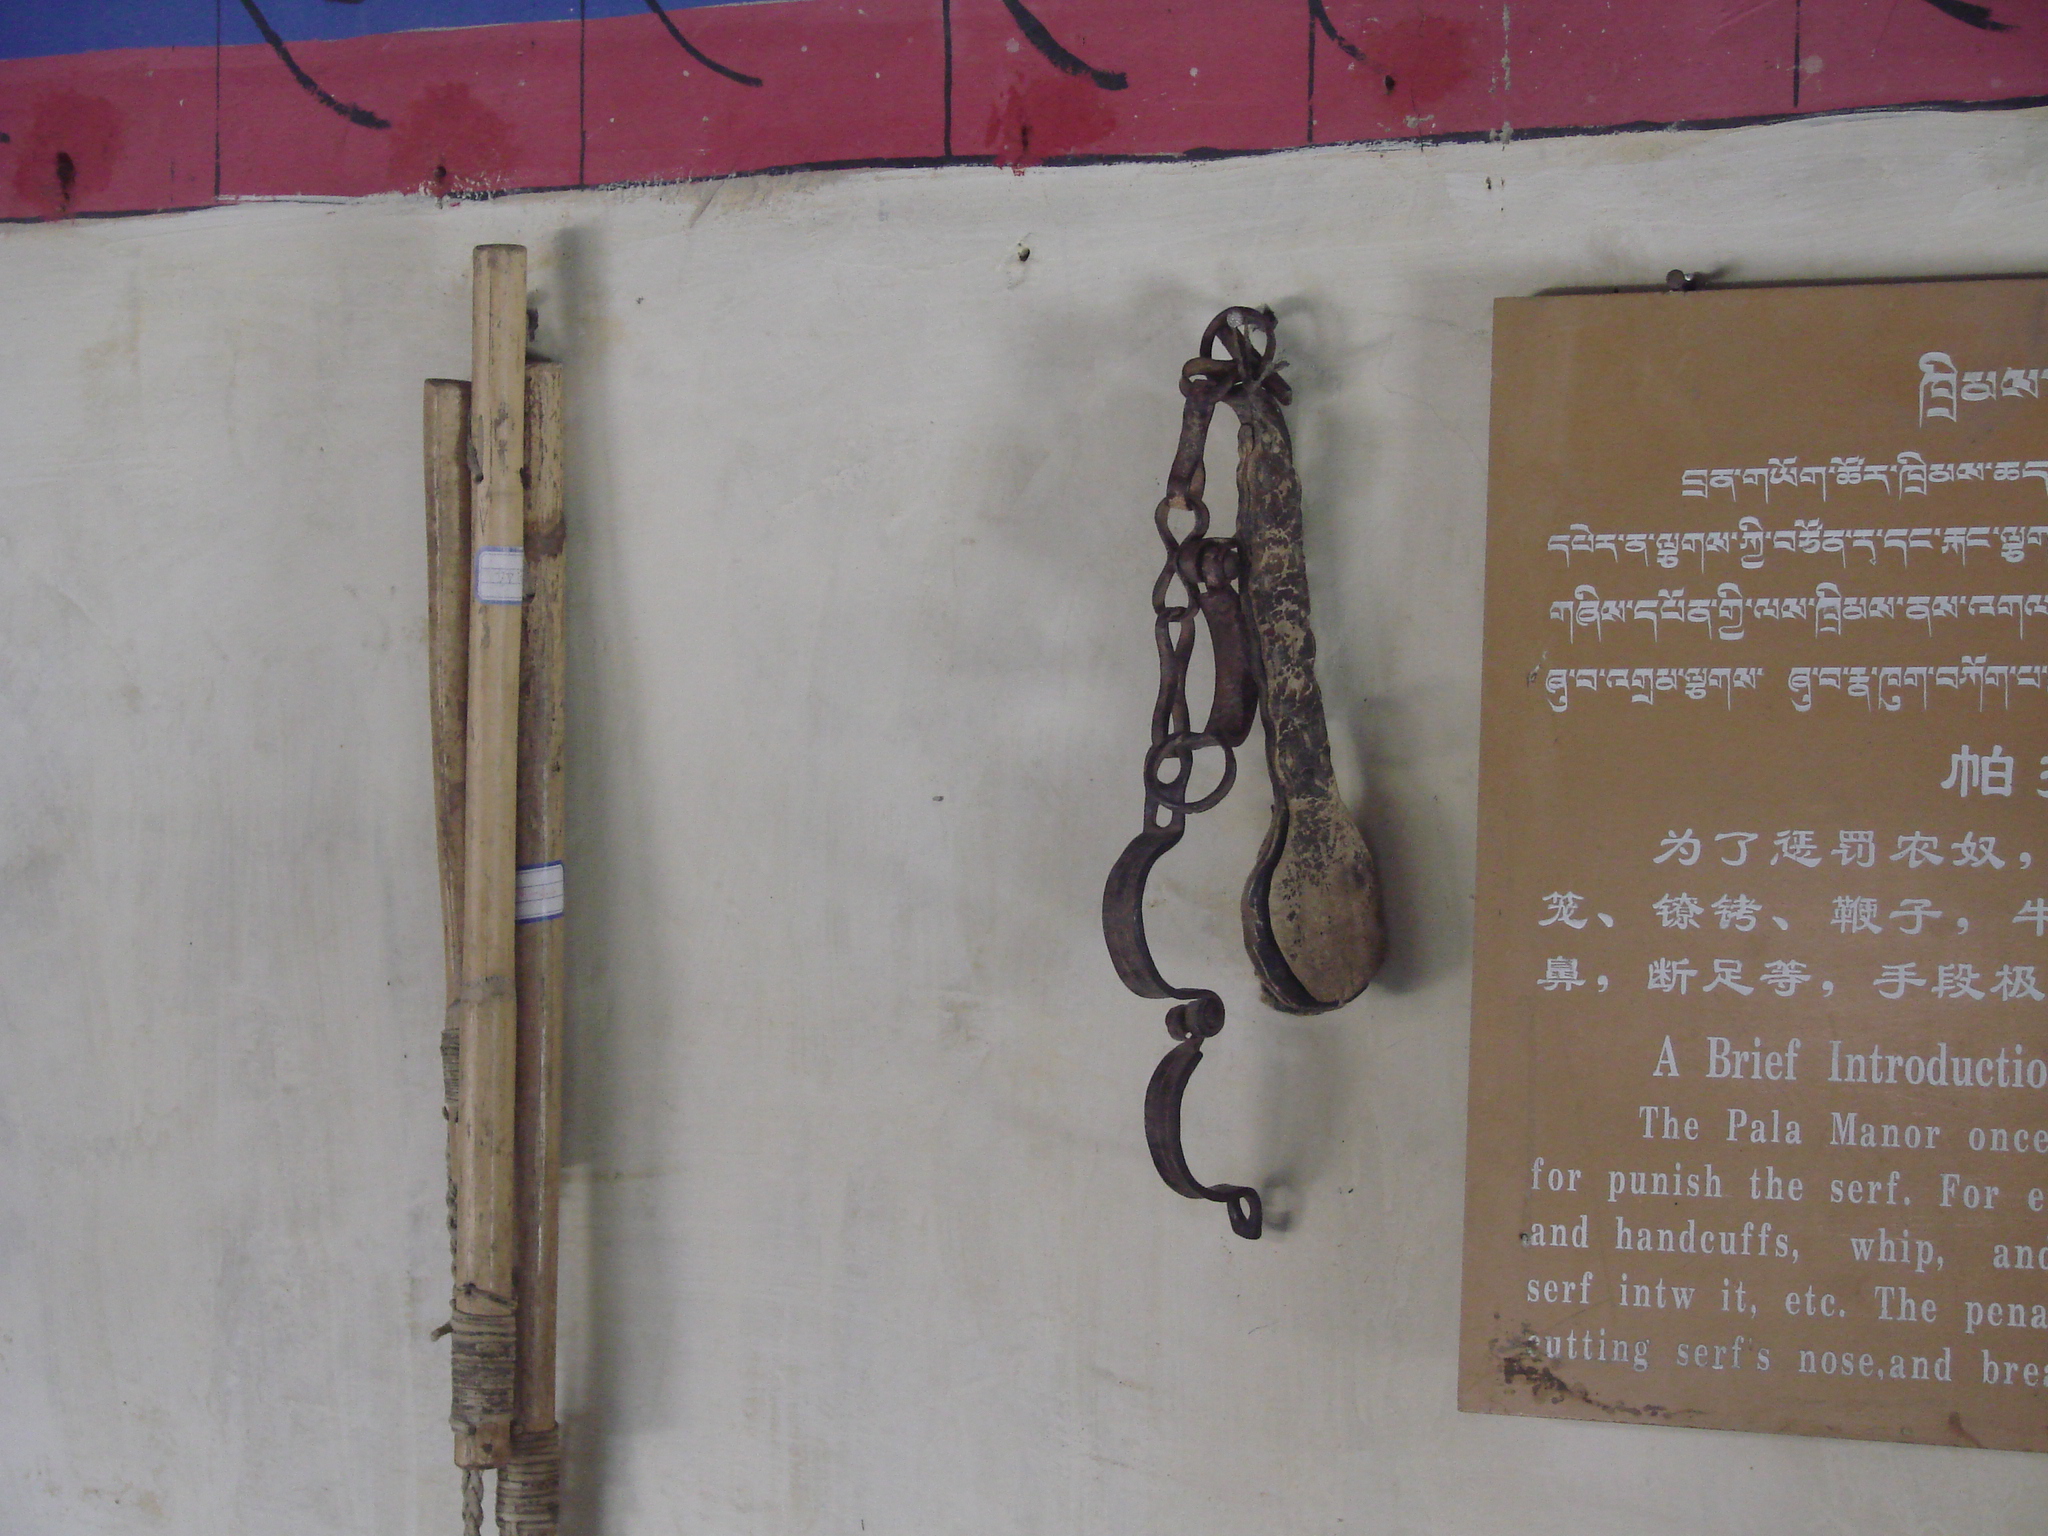 ཁྲིམས་
བྲན་གཡོག་ཚོར་ཁྲིམས་ཆད
དཔེར་ན་ལྕགས་ཀྱི་བཙོན་དང་རྐང་ལྕག
གཞིས་དཔོན་གྱི་ལས་ཁྲིམས་ནས་འགལ
ཞུ་བ་འགྲམ་ལྕགས་ ཞུ་བ་སྣ་ཁུག་བཀོག་པ་
帕
为了惩罚农奴，
笼、镣铐、鞭子，牛
鼻，断足等，手段极
A Brief Introductio
The Pala Manor once
for punish the serf. For e
and handcuffs, whip, and
serf intw it, etc. The pena
cutting serf's nose,and brea